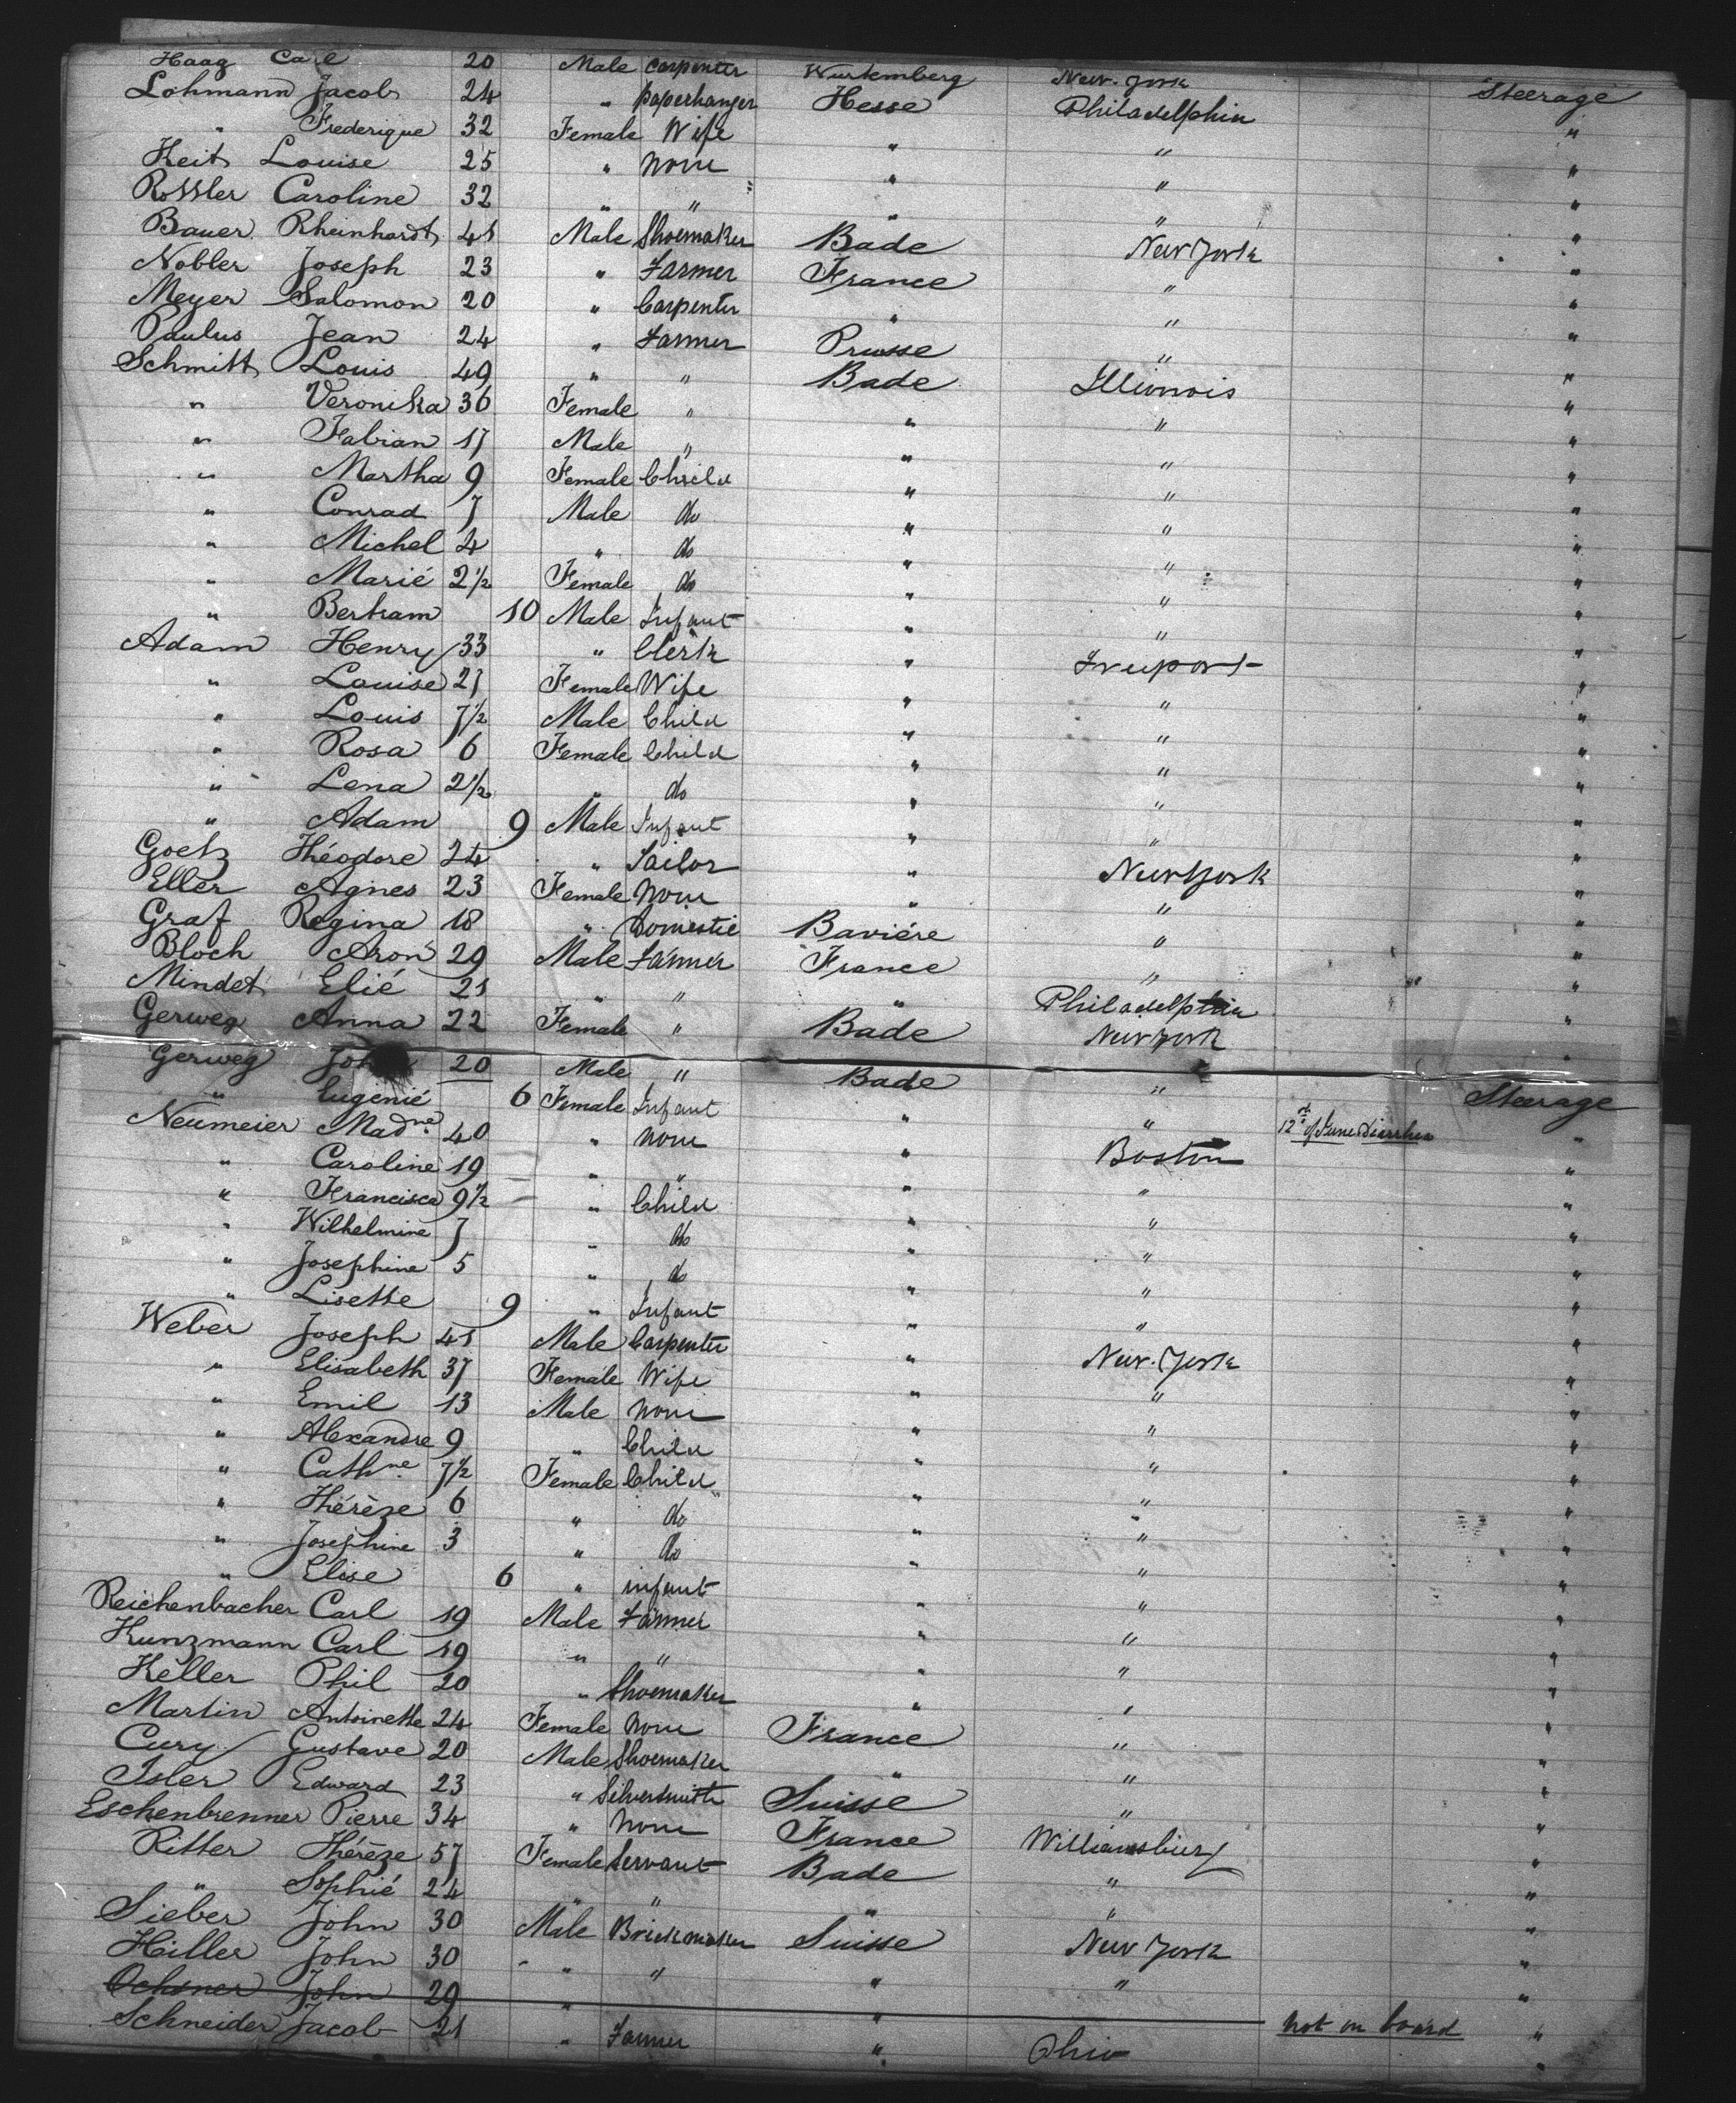 Haag Carl 20 Male Carpenter Wurtemberg New-York Steerage
Lohmann Jacob 24 " paperhanger Hesse Philadelphia "
" Frederique 32 Female Wife " " "
Keit Louise 25 " None " " "
Rossler Caroline 32 " " " " "
Bauer Rheinhardt 41 Male Shoemaker Bade New York "
Nobler Joseph 23 " Farmer France " "
Meyer Salomon 20 " Carpenter " " "
Paulus Jean 24 " Farmer Prusse " "
Schmitt Louis 49 " " Bade Illionois "
" Veronika 36 Female " " " "
" Fabian 17 Male " " " "
" Martha 9 Female Child " " "
" Conrad 7 Male do " " "
" Michel 4 " do " " "
" Marié 2½ Female do " " "
" Bertram 10 Male Infant " " "
Adam Henry 33 " Clerk " Freeport "
" Louise 27 Female Wife " " "
" Louis 7½ Male Child " " "
" Rosa 6 Female Child " " "
" Lena 2½ " do " " "
" Adam 9 Male Infant " " "
Goetz Théodore 24 " Sailor " New York "
Eller Agnes 23 Female None " " "
Graf Regina 18 " Domestic Baviére " "
Bloch Aron 29 Male Farmer France " "
Mindet Elié 21 " " " Philadelphia "
Gerweg Anna 22 Female " Bade New York "
Gerweg John 20 Male " Bade " Steerage
" Eugénié 6 Female Infant " " 12th of June Diarrhea "
Neumeier Madne 40 " None " Boston "
" Caroline 19 " " " " "
" Francisca 9½ " Child " " "
" Wilhelmine 7 " do " " "
" Josephine 5 " do " " "
" Lisette 9 " Infant " " "
Weber Joseph 41 Male Carpenter " New-York "
" Elisabeth 37 Female Wife " " "
" Emil 13 Male None " " "
" Alexandre 9 " Child " " "
" Cathne 7½ Female Child " " "
" Thérèze 6 " do " " "
" Josephine 3 " do " " "
" Elise 6 " infant " " "
Reichenbacher Carl 19 Male Farmer " " "
Kunzmann Carl 19 " " " " "
Keller Phil 20 " Shoemaker " " "
Martin Antoinette 24 Female None France " "
Cury Gustave 20 Male Shoemaker " " "
Isler Edward 23 " Silversmith Suisse " "
Eschenbrenner Pierre 34 " None France Williamsburg "
Ritter Thérèze 57 Female Servant Bade " "
" Sophié 24 " " " " "
Sieber John 30 Male Brickmaker Suisse New York "
Hiller John 30 " " " " "
Ochsner John 29 " " not on board "
Schneider Jacob 21 " Farmer " Ohio "